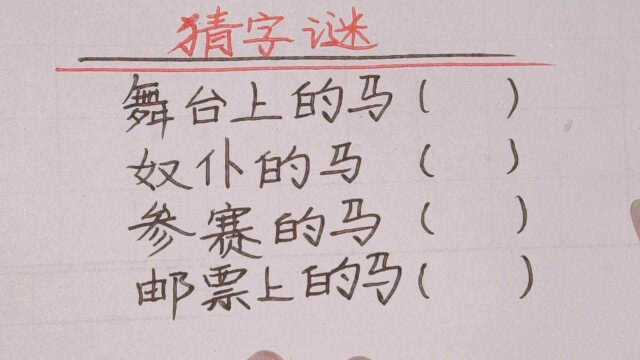 猜字谜
舞台上的马( )
奴仆的马( )
参赛的马( )
邮票上的马( )